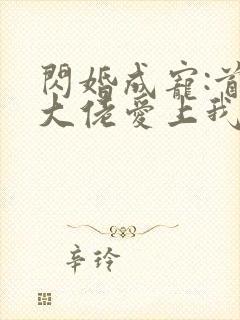 閃婚成寵:首
大佬愛上我
辛玲